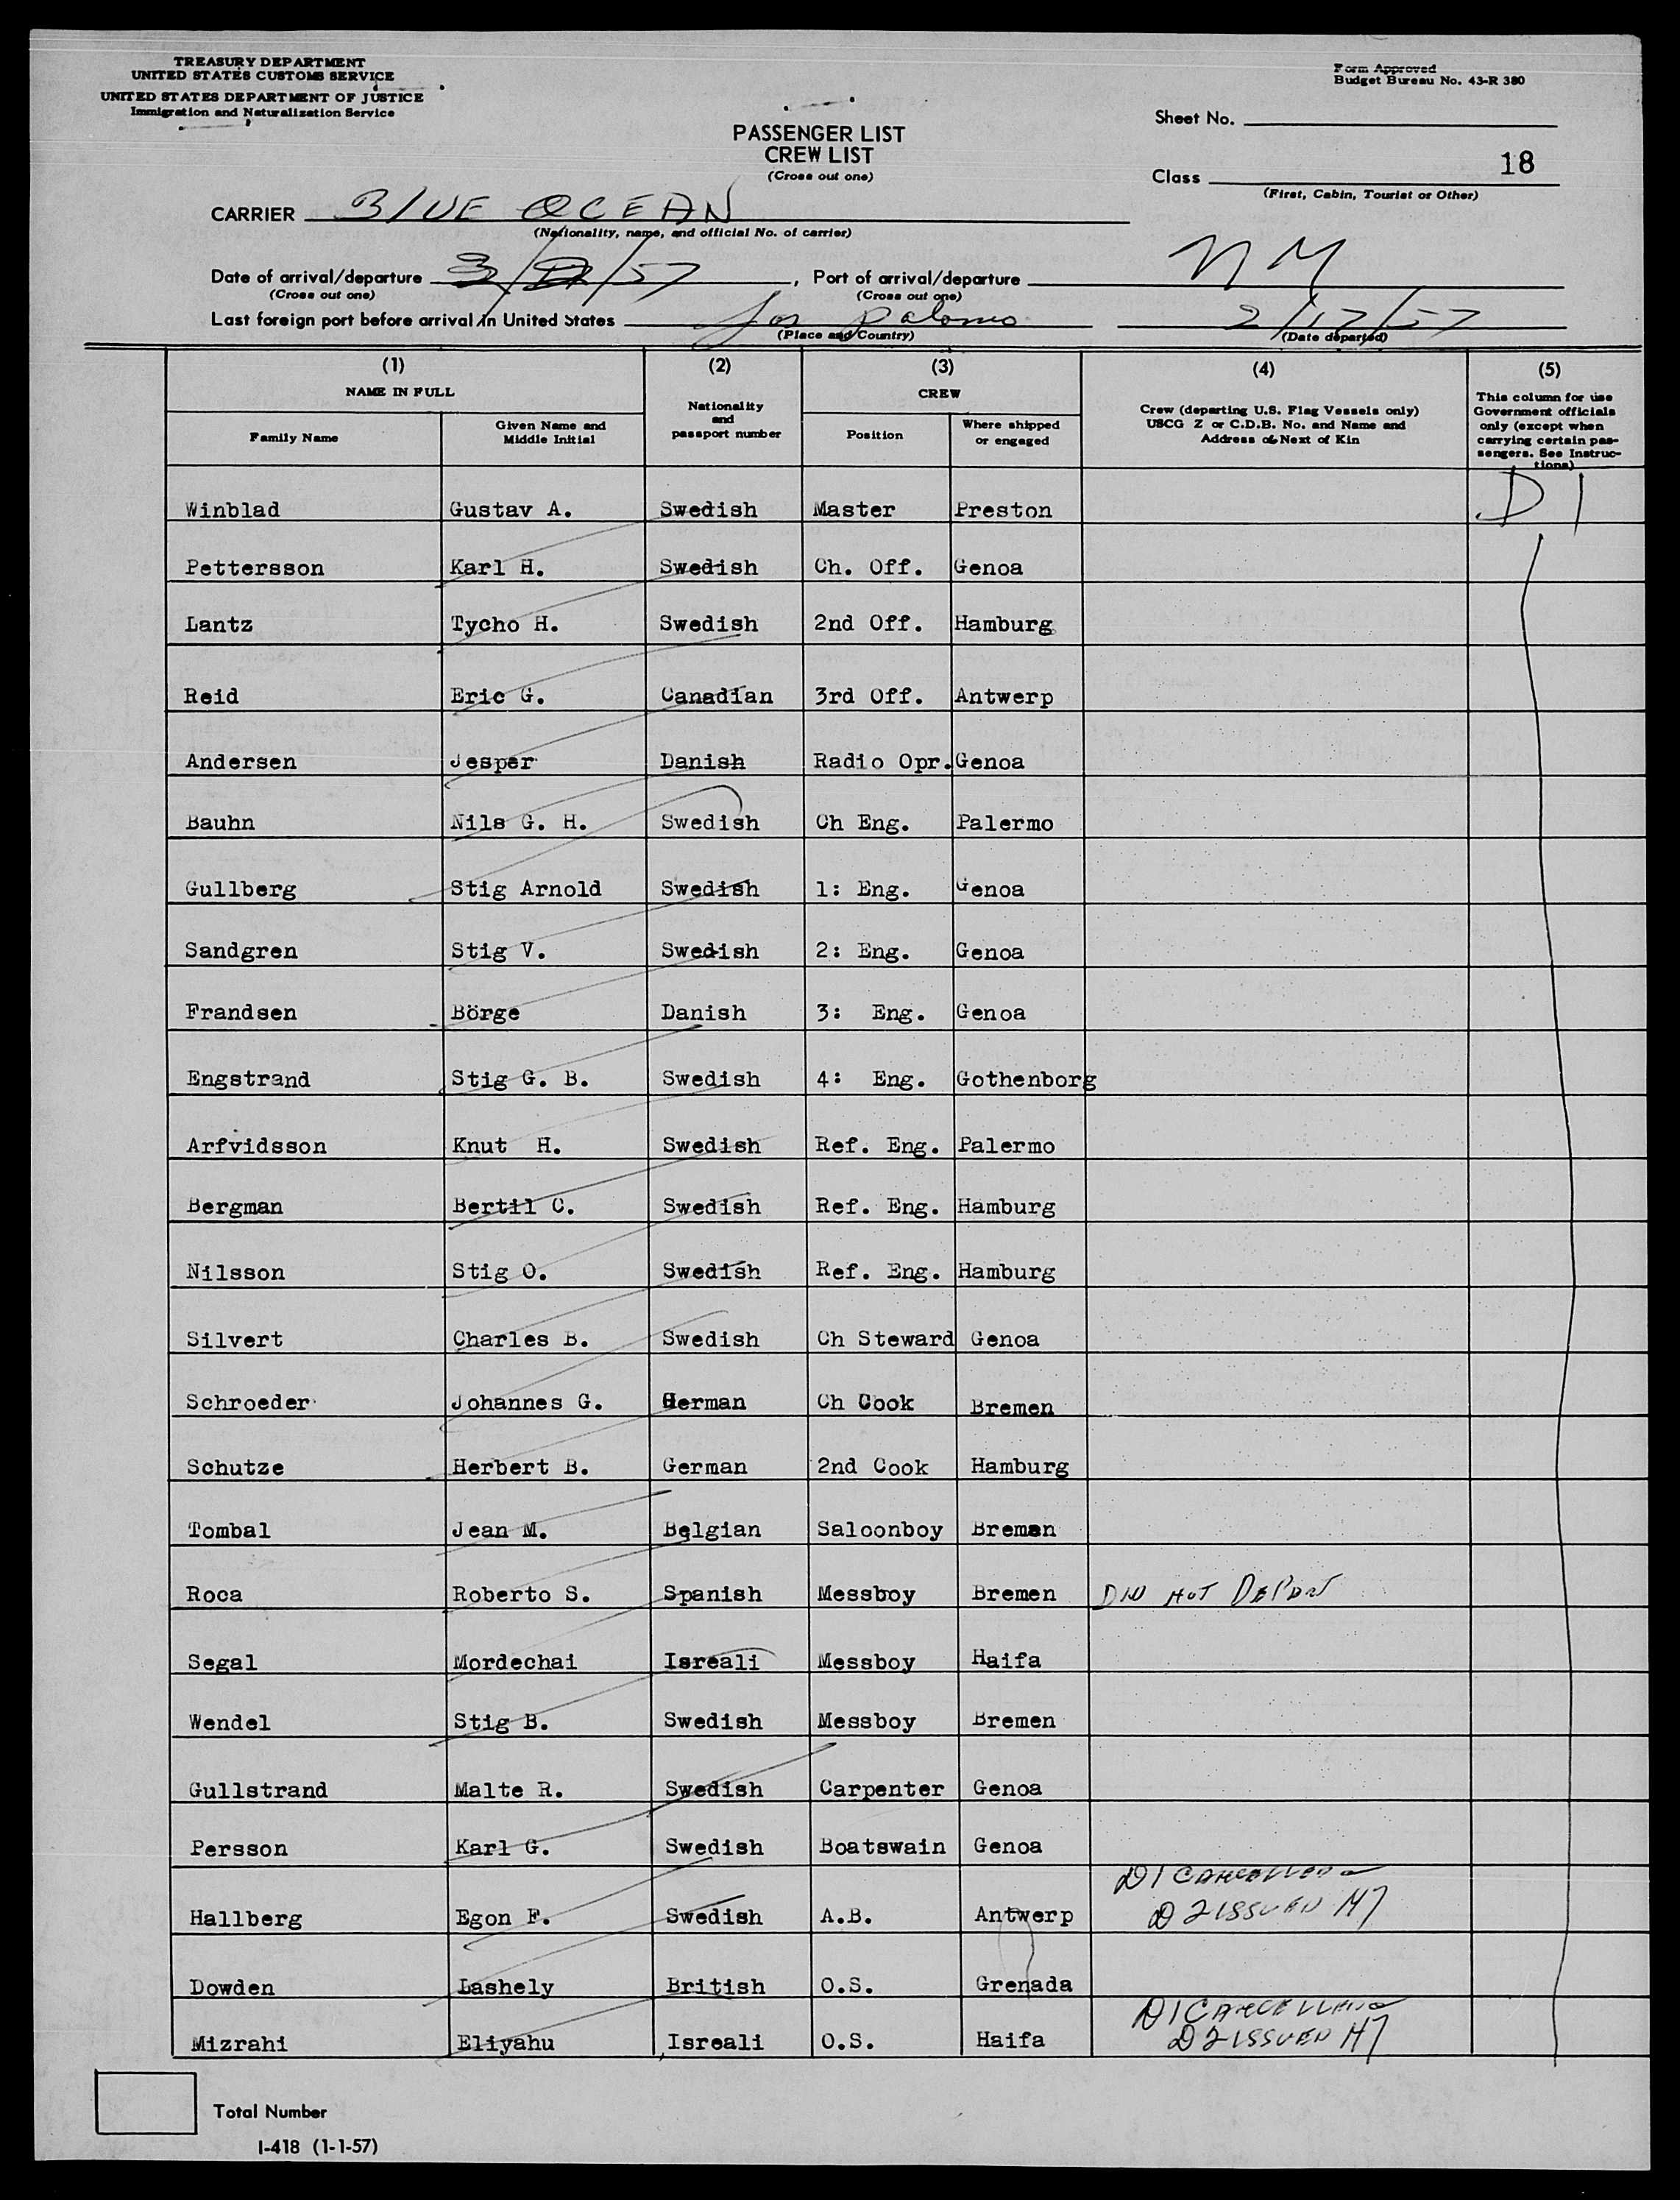 TREASURY DEPARTMENT
UNITED STATES CUSTOMS SERVICE
UNITED STATES DEPARTMENT OF JUSTICE
Immigration and Naturalization Service
Form Approved
Budget Bureau No. 43-R 380
PASSENGER LIST
CREW LIST
(Cross out one)
Sheet No.
Class 18
(First, Cabin, Tourist or Other)
CARRIER BLUE OCEAN
(Nationality, name, and official No. of carrier)
Date of arrival/departure 3/ /57, Port of arrival/departure
(Cross out one) (Cross out one)
Last foreign port before arrival in United States Los Palomo 2/17/57
(Place and Country) (Date departed)
(1) (2) (3) (4) (5)
NAME IN FULL Nationality and passport number CREW Crew (departing U.S. Flag Vessels only) USCG Z or C.D.B. No. and Name and Address of Next of Kin This column for use Government officials only (except when carrying certain passengers. See Instructions)
Family Name Given Name and Middle Initial Position Where shipped or engaged
Winblad Gustav A. Swedish Master Preston D 1
Pettersson Karl H. Swedish Ch. Off. Genoa
Lantz Tycho H. Swedish 2nd Off. Hamburg
Reid Eric G. Canadian 3rd Off. Antwerp
Andersen Jesper Danish Radio Opr. Genoa
Bauhn Nils G. H. Swedish Ch Eng. Palermo
Gullberg Stig Arnold Swedish 1: Eng. Genoa
Sandgren Stig V. Swedish 2: Eng. Genoa
Frandsen Börge Danish 3: Eng. Genoa
Engstrand Stig G. B. Swedish 4: Eng. Gothenborg
Arfvidsson Knut H. Swedish Ref. Eng. Palermo
Bergman Bertil C. Swedish Ref. Eng. Hamburg
Nilsson Stig O. Swedish Ref. Eng. Hamburg
Silvert Charles B. Swedish Ch Steward Genoa
Schroeder Johannes G. German Ch Cook Bremen
Schutze Herbert B. German 2nd Cook Hamburg
Tombal Jean M. Belgian Saloonboy Bremen
Roca Roberto S. Spanish Messboy Bremen DID NOT DEPART
Segal Mordechai Isreali Messboy Haifa
Wendel Stig B. Swedish Messboy Bremen
Gullstrand Malte R. Swedish Carpenter Genoa
Persson Karl G. Swedish Boatswain Genoa
D1 CANCELLED
Hallberg Egon F. Swedish A.B. Antwerp D2 ISSUED
Dowden Lashely British O.S. Grenada
D1 CANCELLED
Mizrahi Eliyahu Isreali O.S. Haifa D2 ISSUED
Total Number
I-418 (1-1-57)